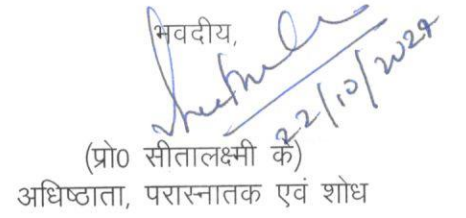 भवदीय,
22/10/2024
(प्रो0 सीतालक्ष्मी के)
अधिष्ठाता, परास्नातक एवं शोध